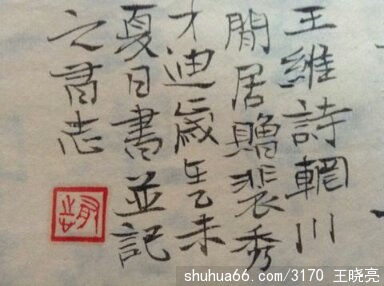 王維詩輞川
閒居贈裴秀
才迪歲乙未
夏日書並記
之
shuhua66.com/3170 王晓亮